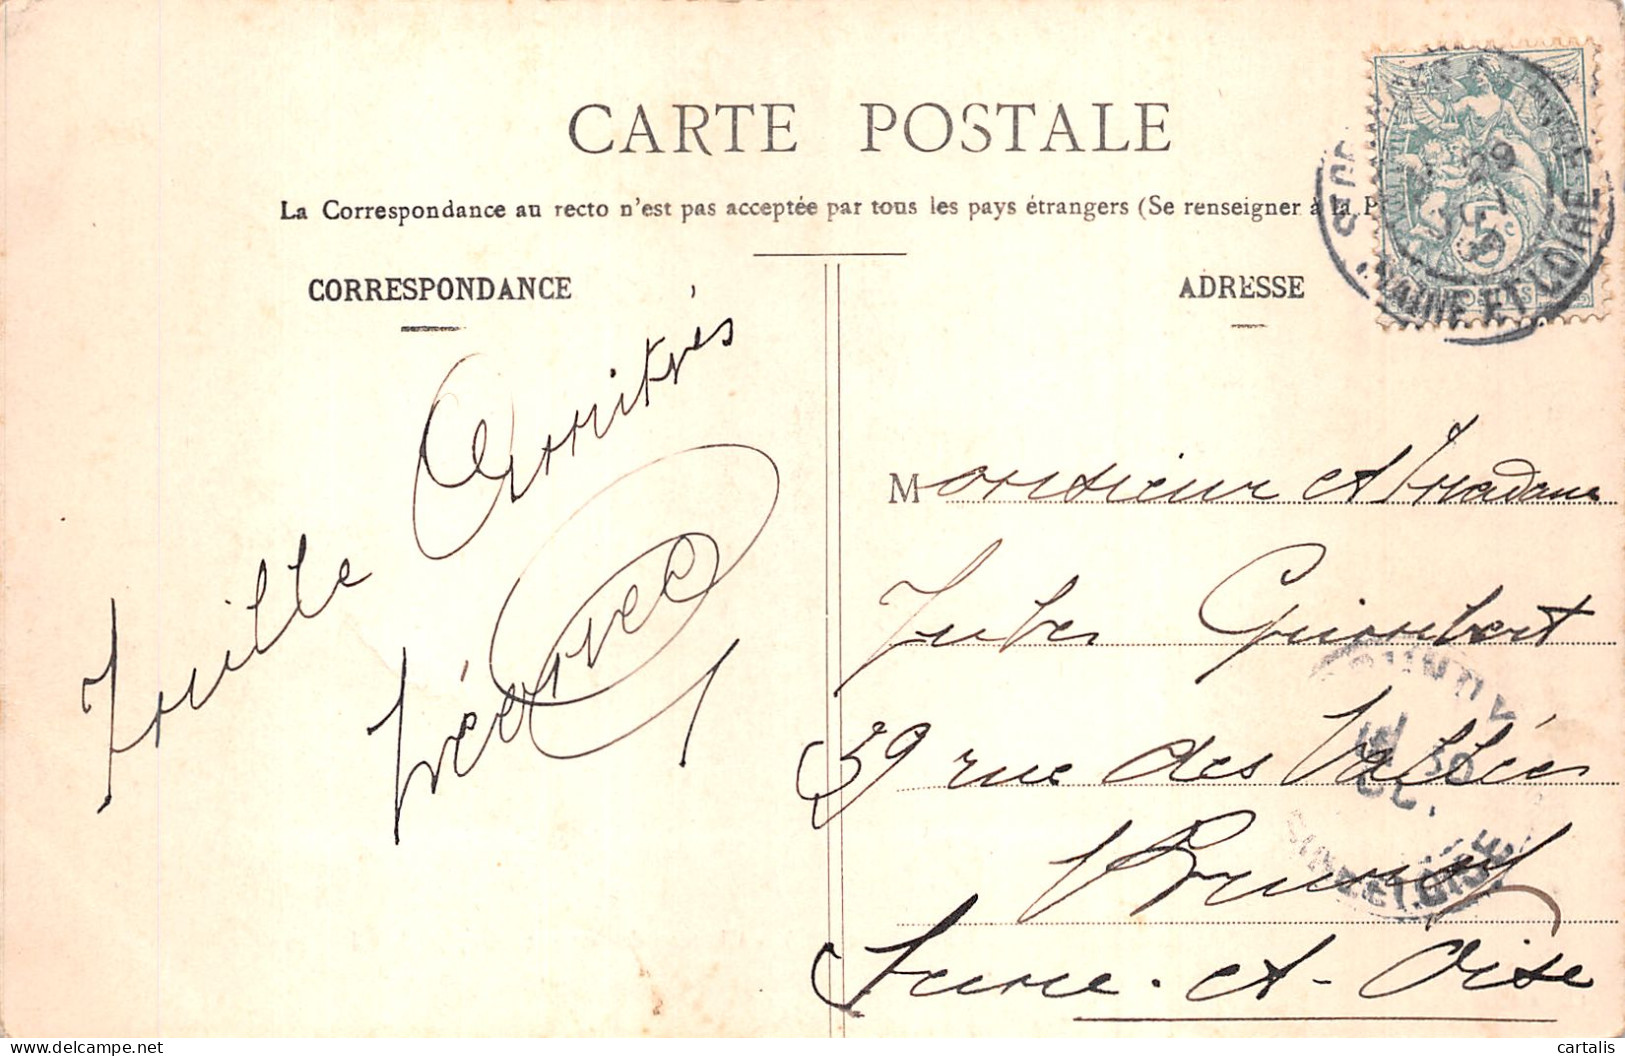 CARTE POSTALE
La Correspondance au recto n'est pas acceptée par tous les pays étrangers (Se renseigner à la P
CORRESPONDANCE
ADRESSE
Mille Amitiés
Monsieur et Madame
Jules
59 rue des Vallées
Brunoy
Seine-et-Oise
MAINE ET LOIRE
29
5c
30
SEINE ET OISE
cartalis